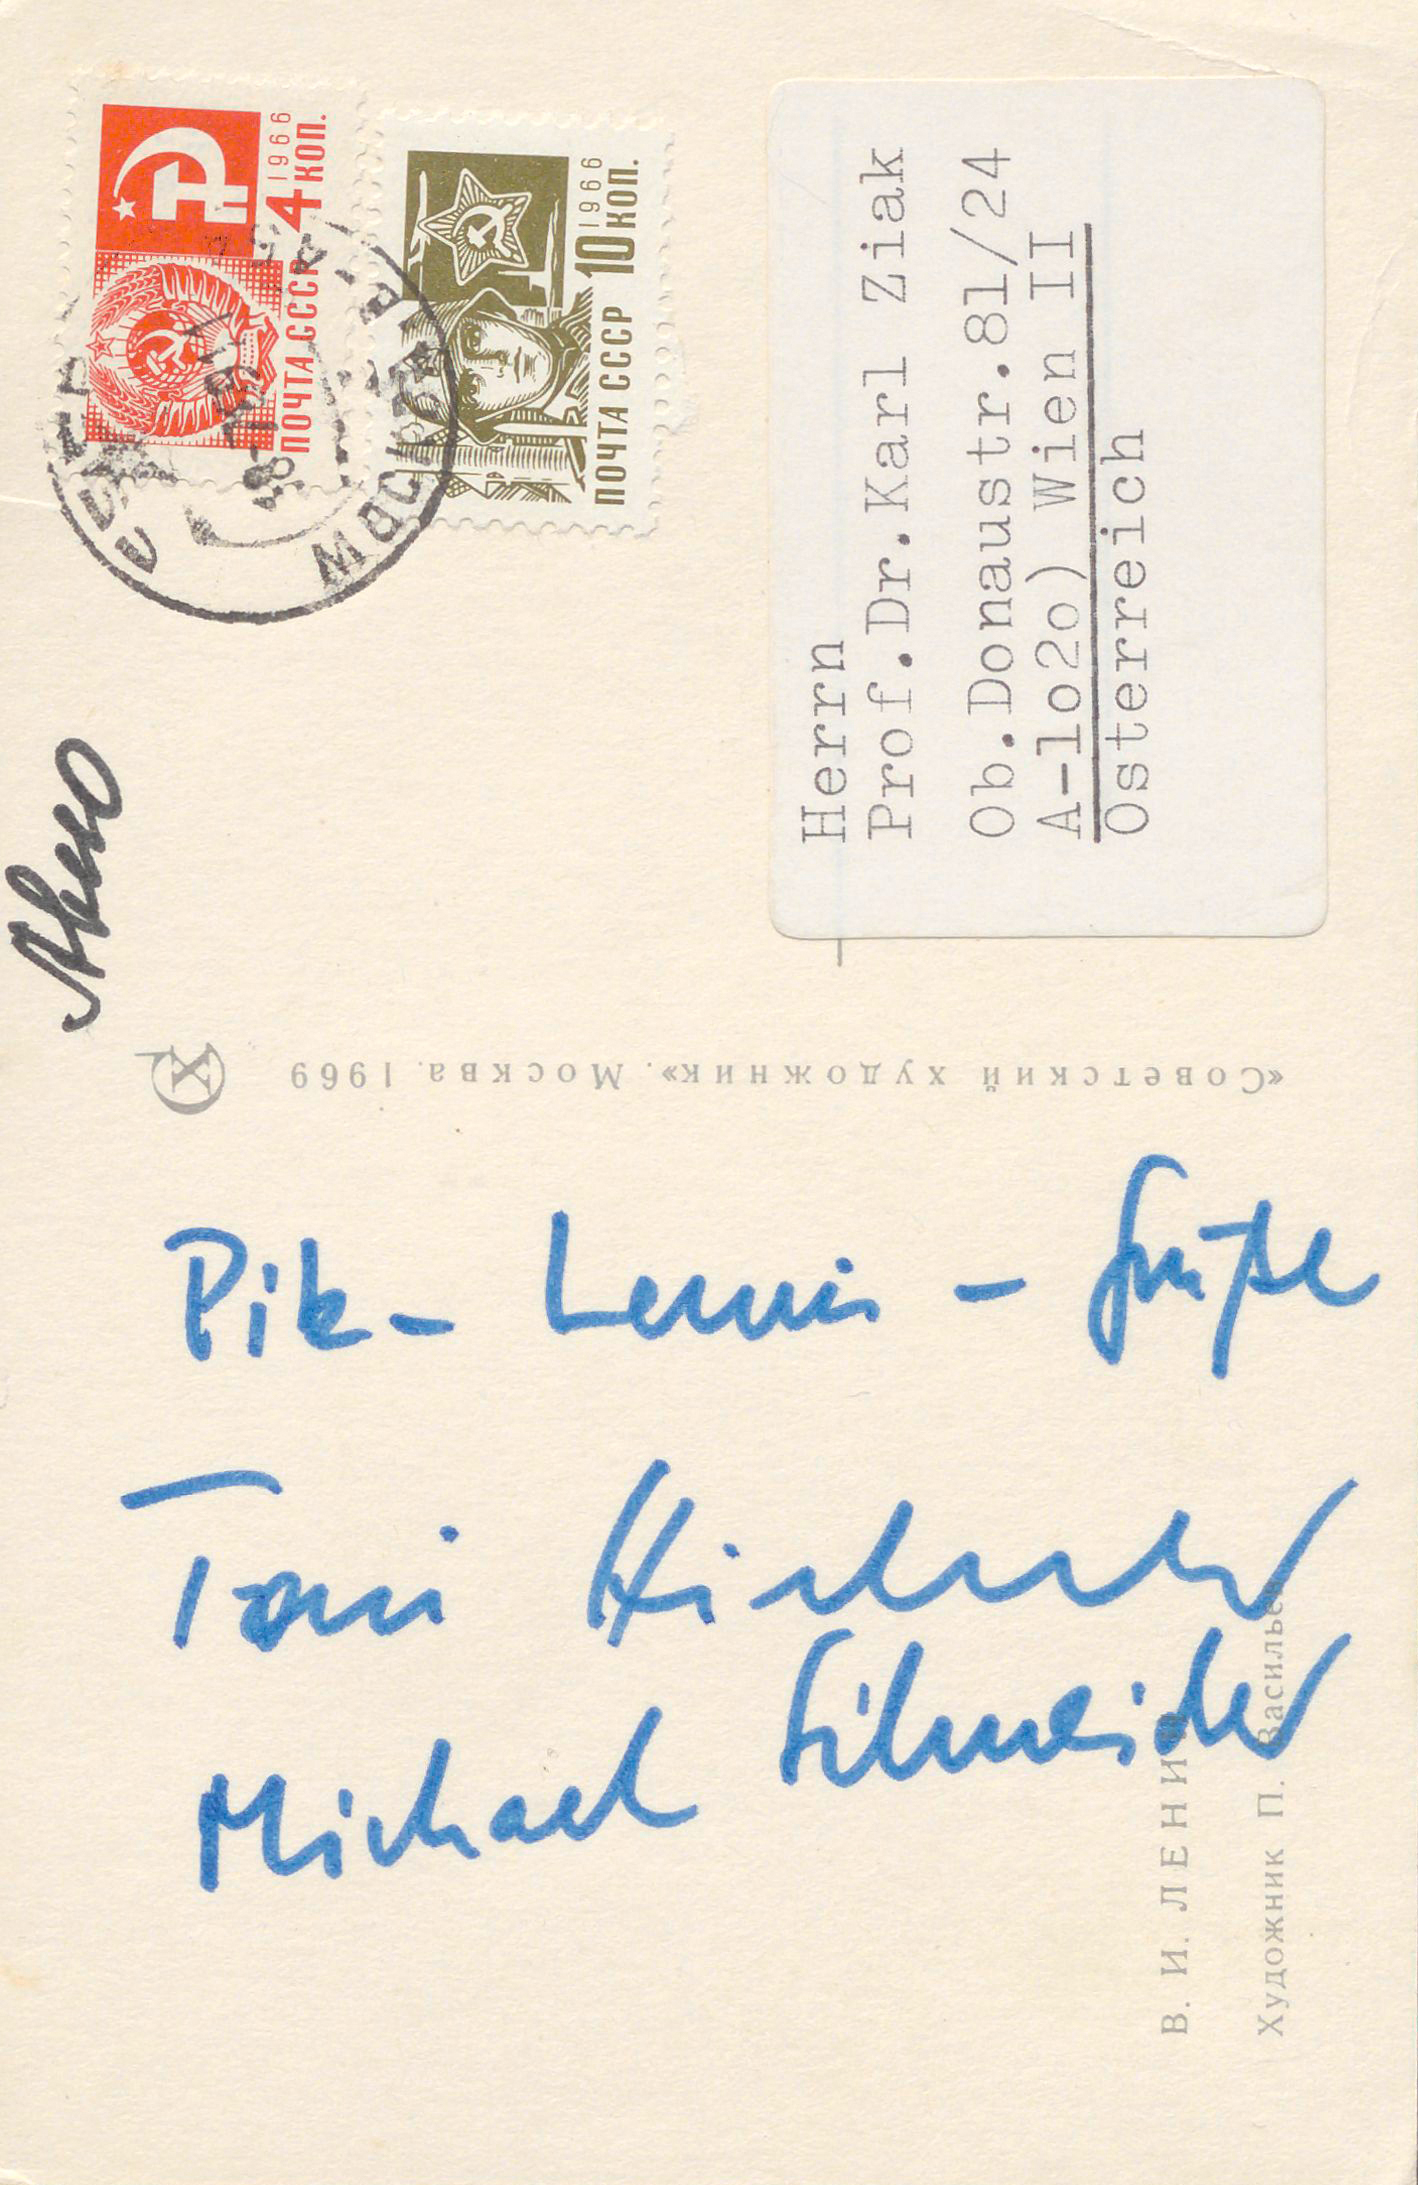 ПОЧТА СССР 4 КОП.
1966
ПОЧТА СССР 10 КОП.
1966
МОСКВА
Herrn
Prof.Dr.Karl Ziak
Ob.Donaustr.81/24
A-1o2o) Wien II
Österreich
«Советский художник». Москва. 1969
Pik- Lenin - Grüße
Toni
Michael Schneider
В. И. ЛЕНИН
Художник П. Васильев